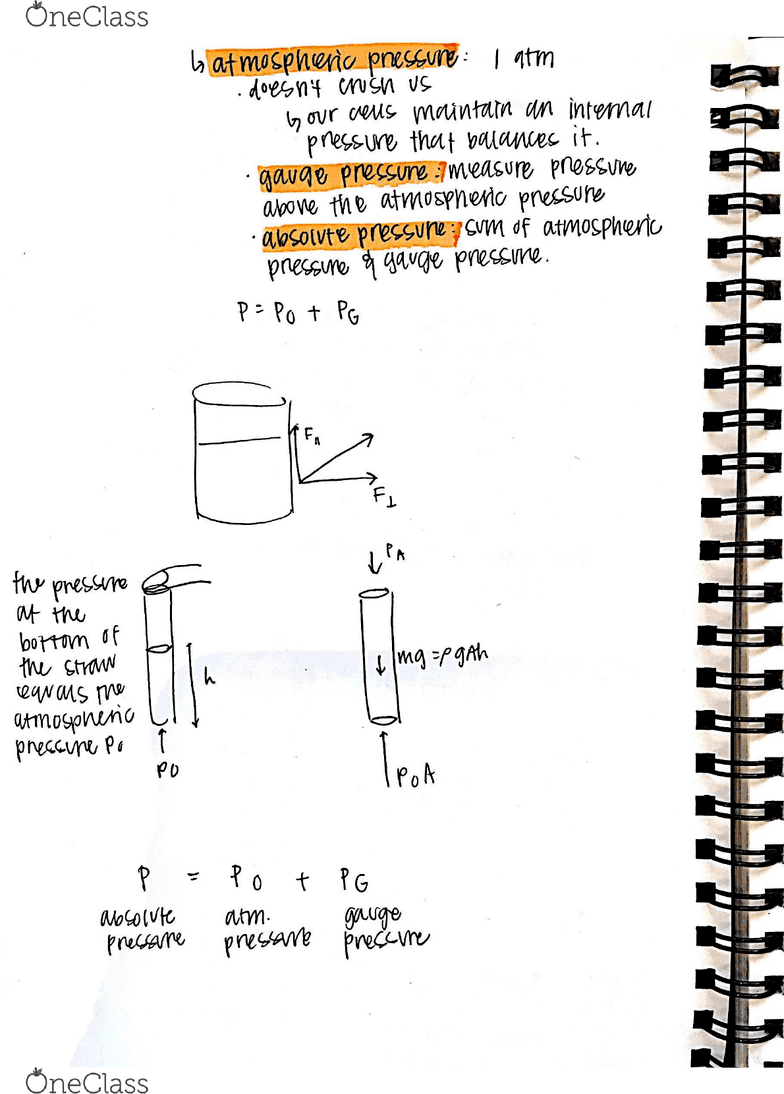 OneClass
↳ atmospheric pressure: 1 atm
· doesn't crush us
↳ our cells maintain an internal
pressure that balances it.
· gauge pressure: measure pressure
above the atmospheric pressure
· absolute pressure: sum of atmospheric
pressure & gauge pressure.
P = P0 + PG
F∥
F⊥
the pressure
at the
bottom of
the straw
equals the
atmospheric
pressure P0
h
P0
PA
mg = ρgAh
P0A
P = P0 + PG
absolute pressure
atm. pressure
gauge pressure
OneClass